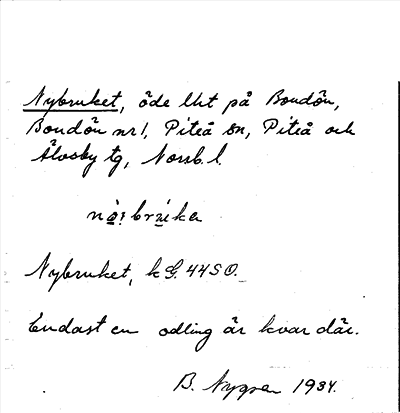 Nybruket, öde lht på Bondön,
Bondön nr 1, Piteå sn, Piteå och
Älvsby tg, Norrb. l.
Nybruket, kG. 44SO.
Endast en odling är kvar där.
B. Nygren 1934.